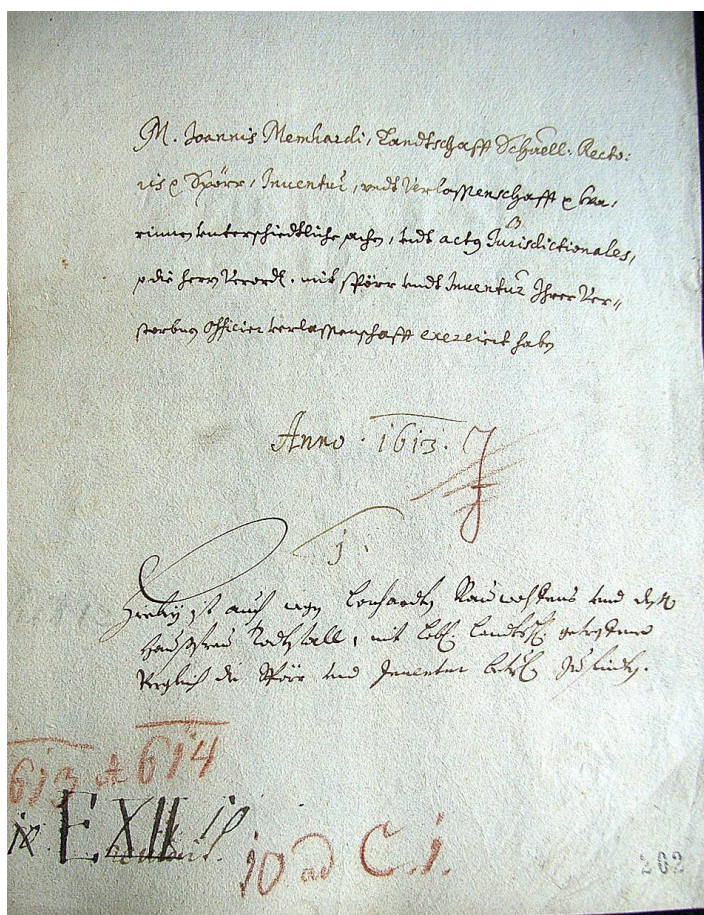 M. Joannis Memhardi, Landtschafft Schuell: Recto:
ris Spörr, Inventur, undt Verlassenschafft
rinnen unterschiedtliche sachen, undt actq Jurisdictionales,
die herrn Verordt. mit spörr undt Inventur Ihrer Ver=
storbnen Officier verlassenschafft exerciert haben
Anno . 1613.
J
j.
Hierbey ist auch wegen Leonhardten Rauwolffens und dessen
Haussfrau Todtfall, mit Löbl. Landtsch. getroffene
Vergleich die Spörr und Inventur betr. zu finden.
613 et 614
E XII
10 ad C.1.
202